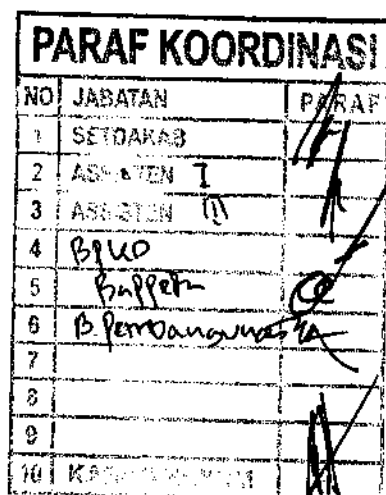 PARAF KOORDINASI
NO JABATAN PARAF
1 SETDAKAB
2 ASISTEN I
3 ASISTEN III
4 BPKD
5 Bappeda
6 B. Pembangunan
7
8
9
10